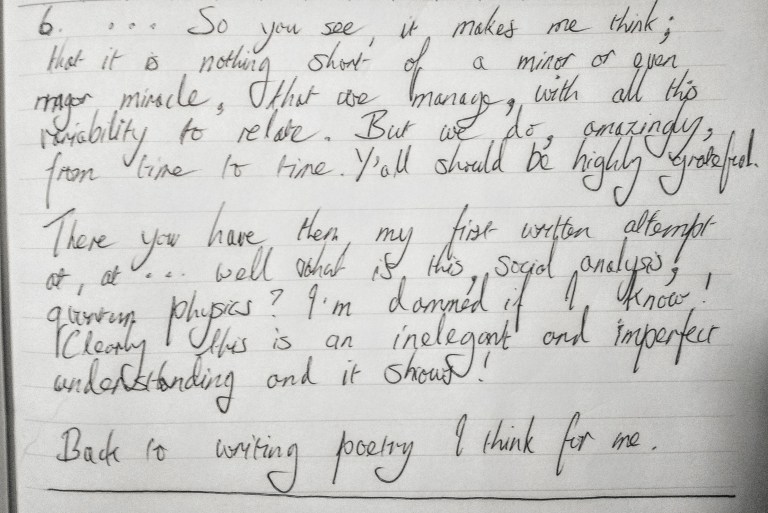 6. ... So you see, it makes me think;
that it is nothing short of a minor or even
major miracle, that we manage, with all this
variability to relate. But we do, amazingly,
from time to time. Y'all should be highly grateful.
There you have them, my first written attempt
at, at ... well what is this, social analysis,
quantum physics? I'm damned if I know!
Clearly this is an inelegant and imperfect
understanding and it shows!
Back to writing poetry I think for me.